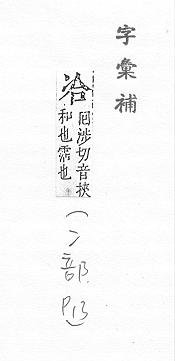 字彙補
冾 囘涉切音挾
和也霑也
(冫部
P13)